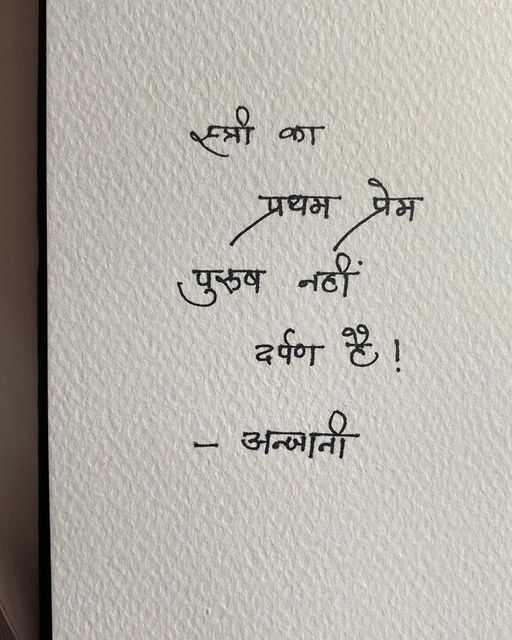 स्त्री का
प्रथम प्रेम
पुरुष नहीं
दर्पण है !
– अन्जानी